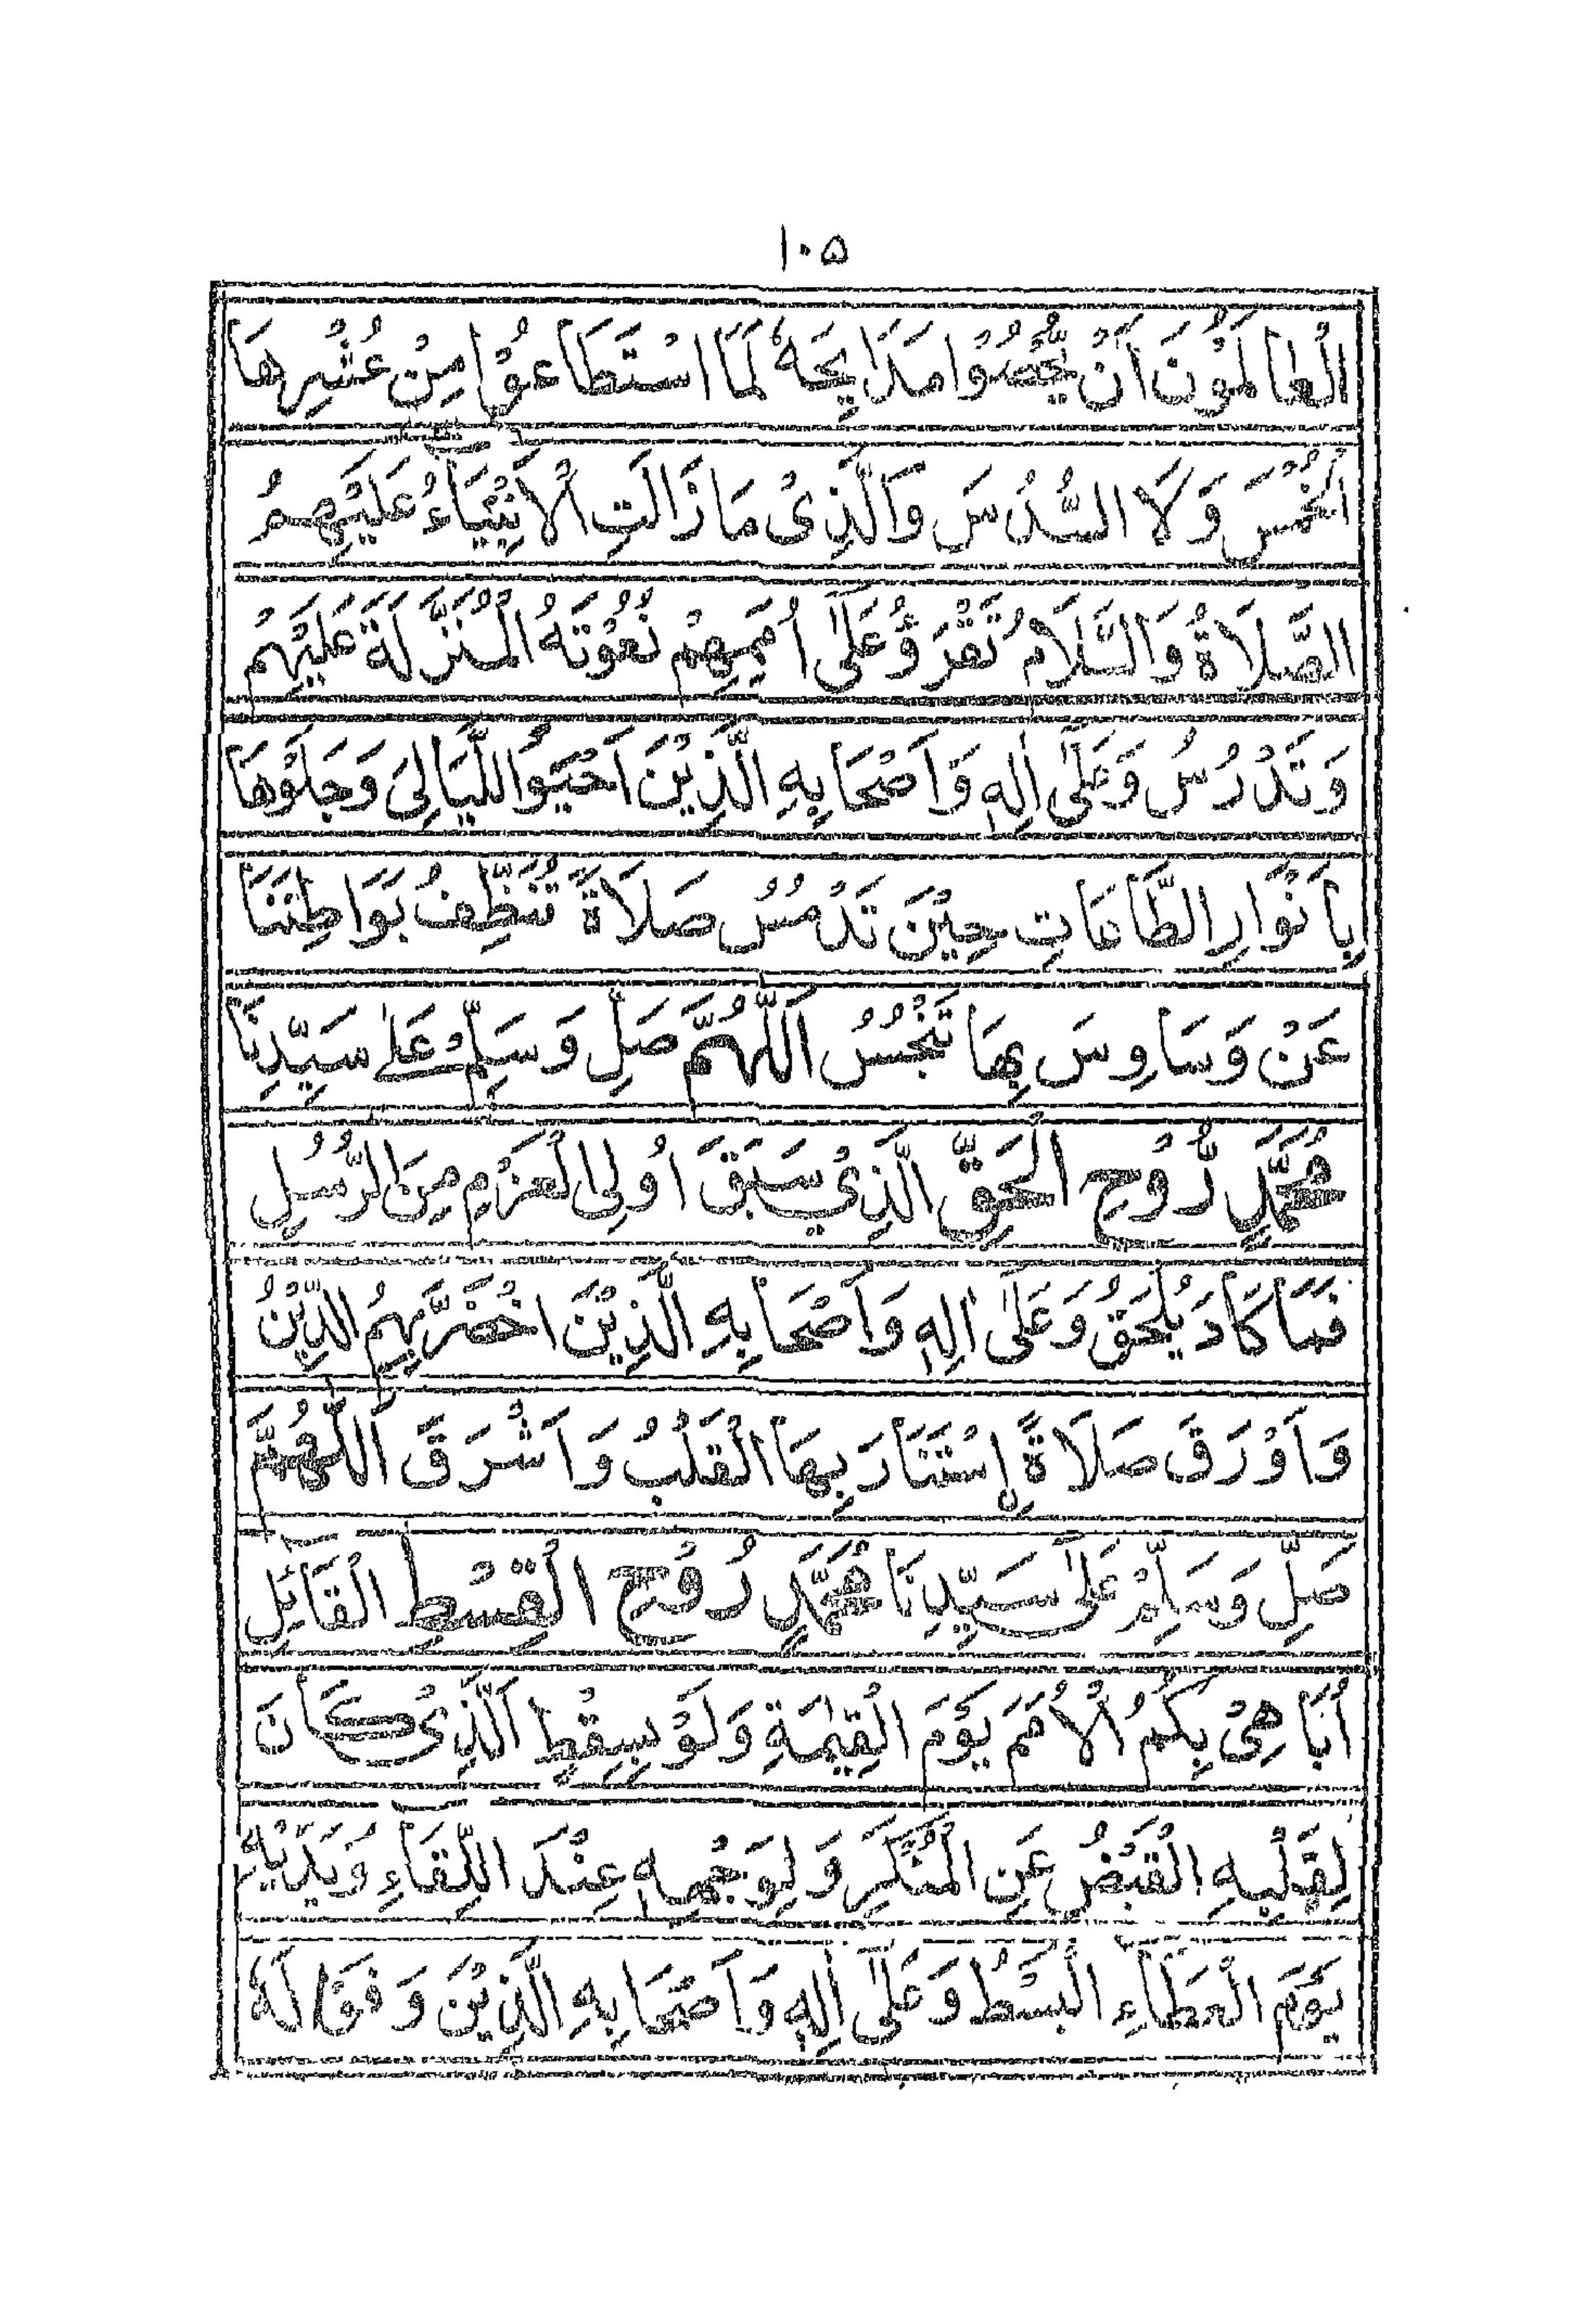 ١٠۵
الْعَالَمُوْنَ اَنْ يُّحْصُوْا مَدَايِحَهٗ لَمَا اسْتَطَاعُوْا مِنْ عُشْرِهَا
الْخُمُسَ وَلَا السُّدُسَ وَالَّذِىْ مَازَالَتِ الْاَنْبِيَاءُ عَلَيْهِمُ
الصَّلَاةُ وَالسَّلَامُ تَقْرَؤُ عَلٰٓى اُمَمِهِمْ نُعُوْتَهُ الْمُنَزَّلَةَ عَلَيْهِمْ
وَتَدْرُسُ وَعَلٰٓى اٰلِهٖ وَاَصْحَابِهِ الَّذِيْنَ اَحْيَوُا اللَّيَالِىَ وَجَلَوْهَا
بِاَنْوَارِ الطَّاعَاتِ حِيْنَ تَدْمُسُ صَلَاةً تُنَظِّفُ بَوَاطِنَنَا
عَنْ وَسَاوِسَ بِهَا تَنْجُسُ اَللّٰهُمَّ صَلِّ وَسَلِّمْ عَلٰى سَيِّدِنَا
مُحَمَّدٍ رُّوْحِ الْحَقِّ الَّذِىْ سَبَقَ اُولِى الْعَزْمِ مِنَ الرُّسُلِ
فَمَا كَادَ يُلْحَقُ وَعَلٰٓى اٰلِهٖ وَاَصْحَابِهِ الَّذِيْنَ اخْضَرَّ بِهِمُ الدِّيْنُ
وَاَوْرَقَ صَلَاةً اِسْتَنَارَ بِهَا الْقَلْبُ وَاَشْرَقَ اَللّٰهُمَّ
صَلِّ وَسَلِّمْ عَلٰى سَيِّدِنَا مُحَمَّدٍ رُوْحِ الْقِسْطِ الْقَائِلِ
اُبَاهِىْ بِكُمُ الْاُمَمَ يَوْمَ الْقِيٰمَةِ وَلَوْ بِسِقْطٍ اَلَّذِىْ كَانَ
لِقَلْبِهِ الْقَبْضُ عَنِ الْمُنْكَرِ وَلِوَجْهِهٖ عِنْدَ اللِّقَاءِ وَيَدَيْهِ
يَوْمَ الْعَطَاءِ الْبَسْطُ وَعَلٰٓى اٰلِهٖ وَاَصْحَابِهِ الَّذِيْنَ وَفَوْا لَهٗ